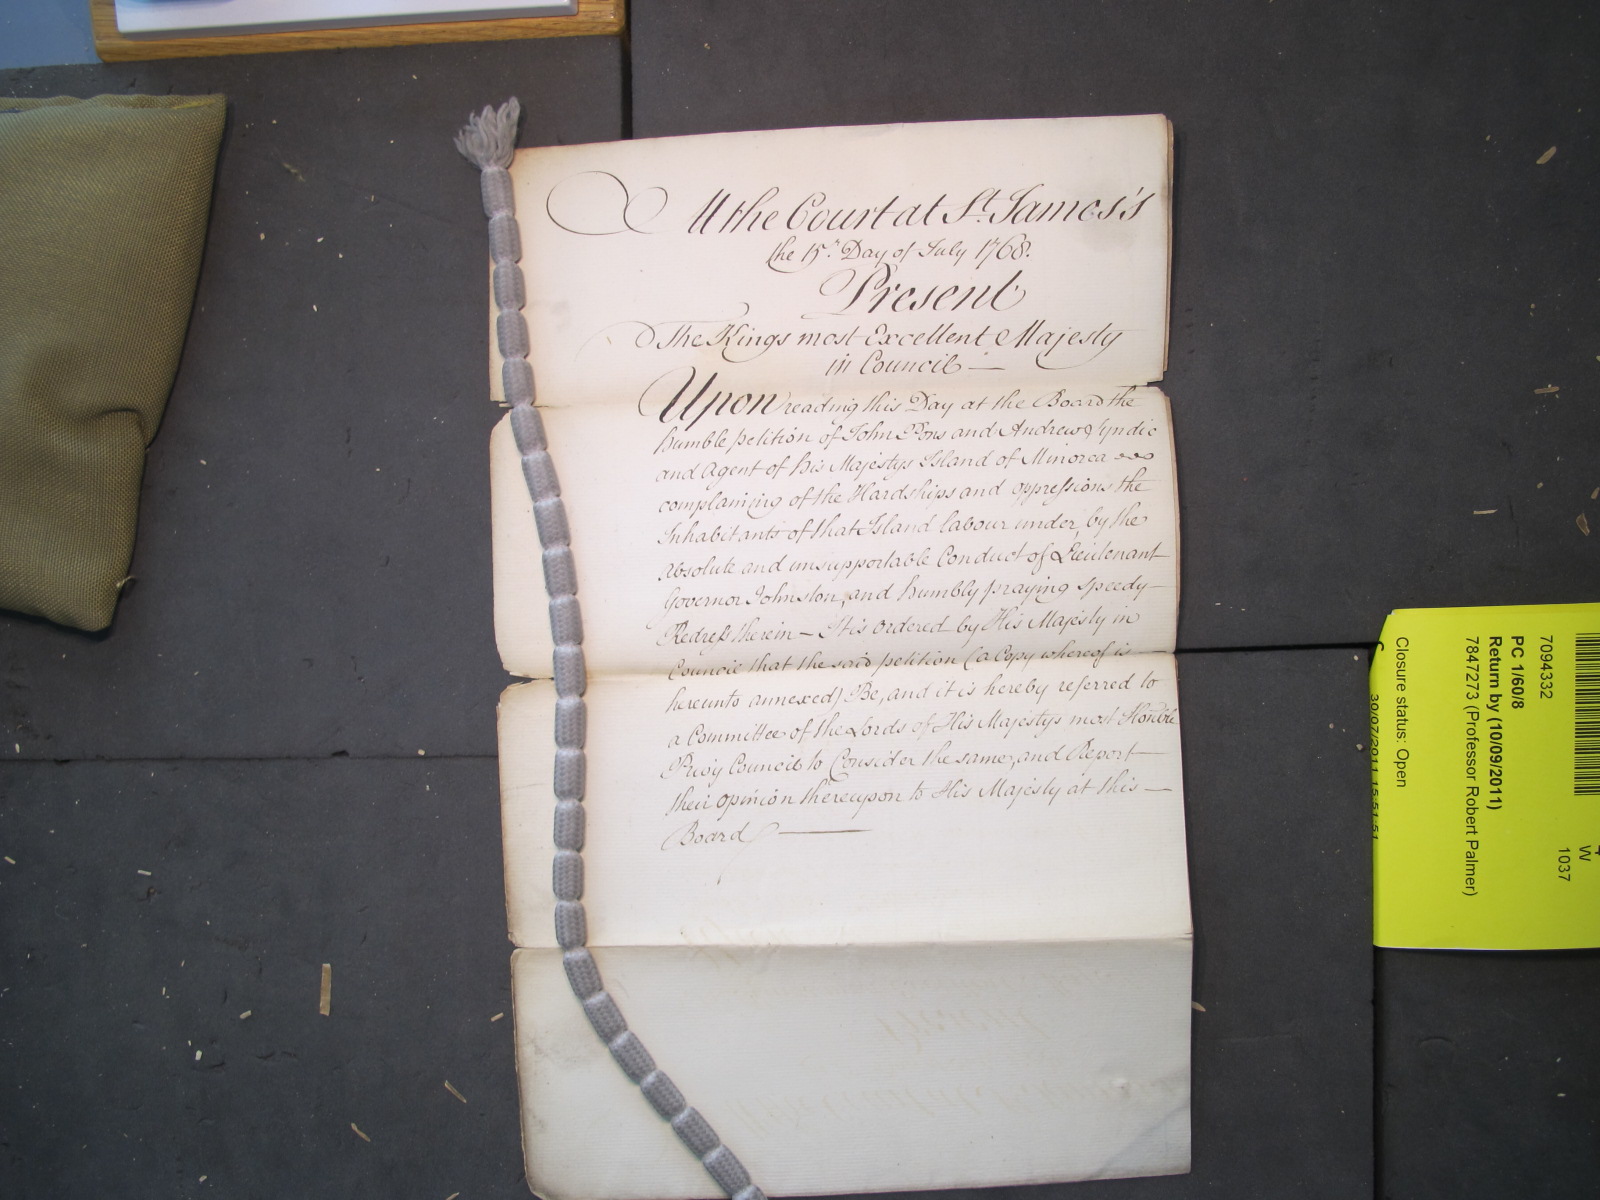 At the Court at St. James's
the 15th. Day of July 1768.
Present
The Kings most Excellent Majesty
in Council —
Upon reading this Day at the Board the
humble petition of John Pons and Andreu Syndic
and Agent of his Majestys Island of Minorca
complaining of the Hardships and oppressions the
Inhabitants of that Island labour under, by the
absolute and unsupportable Conduct of Lieutenant
Governor Johnston, and humbly praying speedy —
Redress therein — It is ordered by His Majesty in
Council that the said petition (a Copy whereof is —
hereunto annexed) Be, and it is hereby referred to
a Committee of the Lords of His Majestys most Honble
Privy Council to Consider the same, and Report —
their opinion thereupon to His Majesty at this —
Board —
7094332
PC 1/60/8
Return by (10/09/2011)
7847273 (Professor Robert Palmer)
Closure status: Open
30/07/2011 15:51:51
W
1037